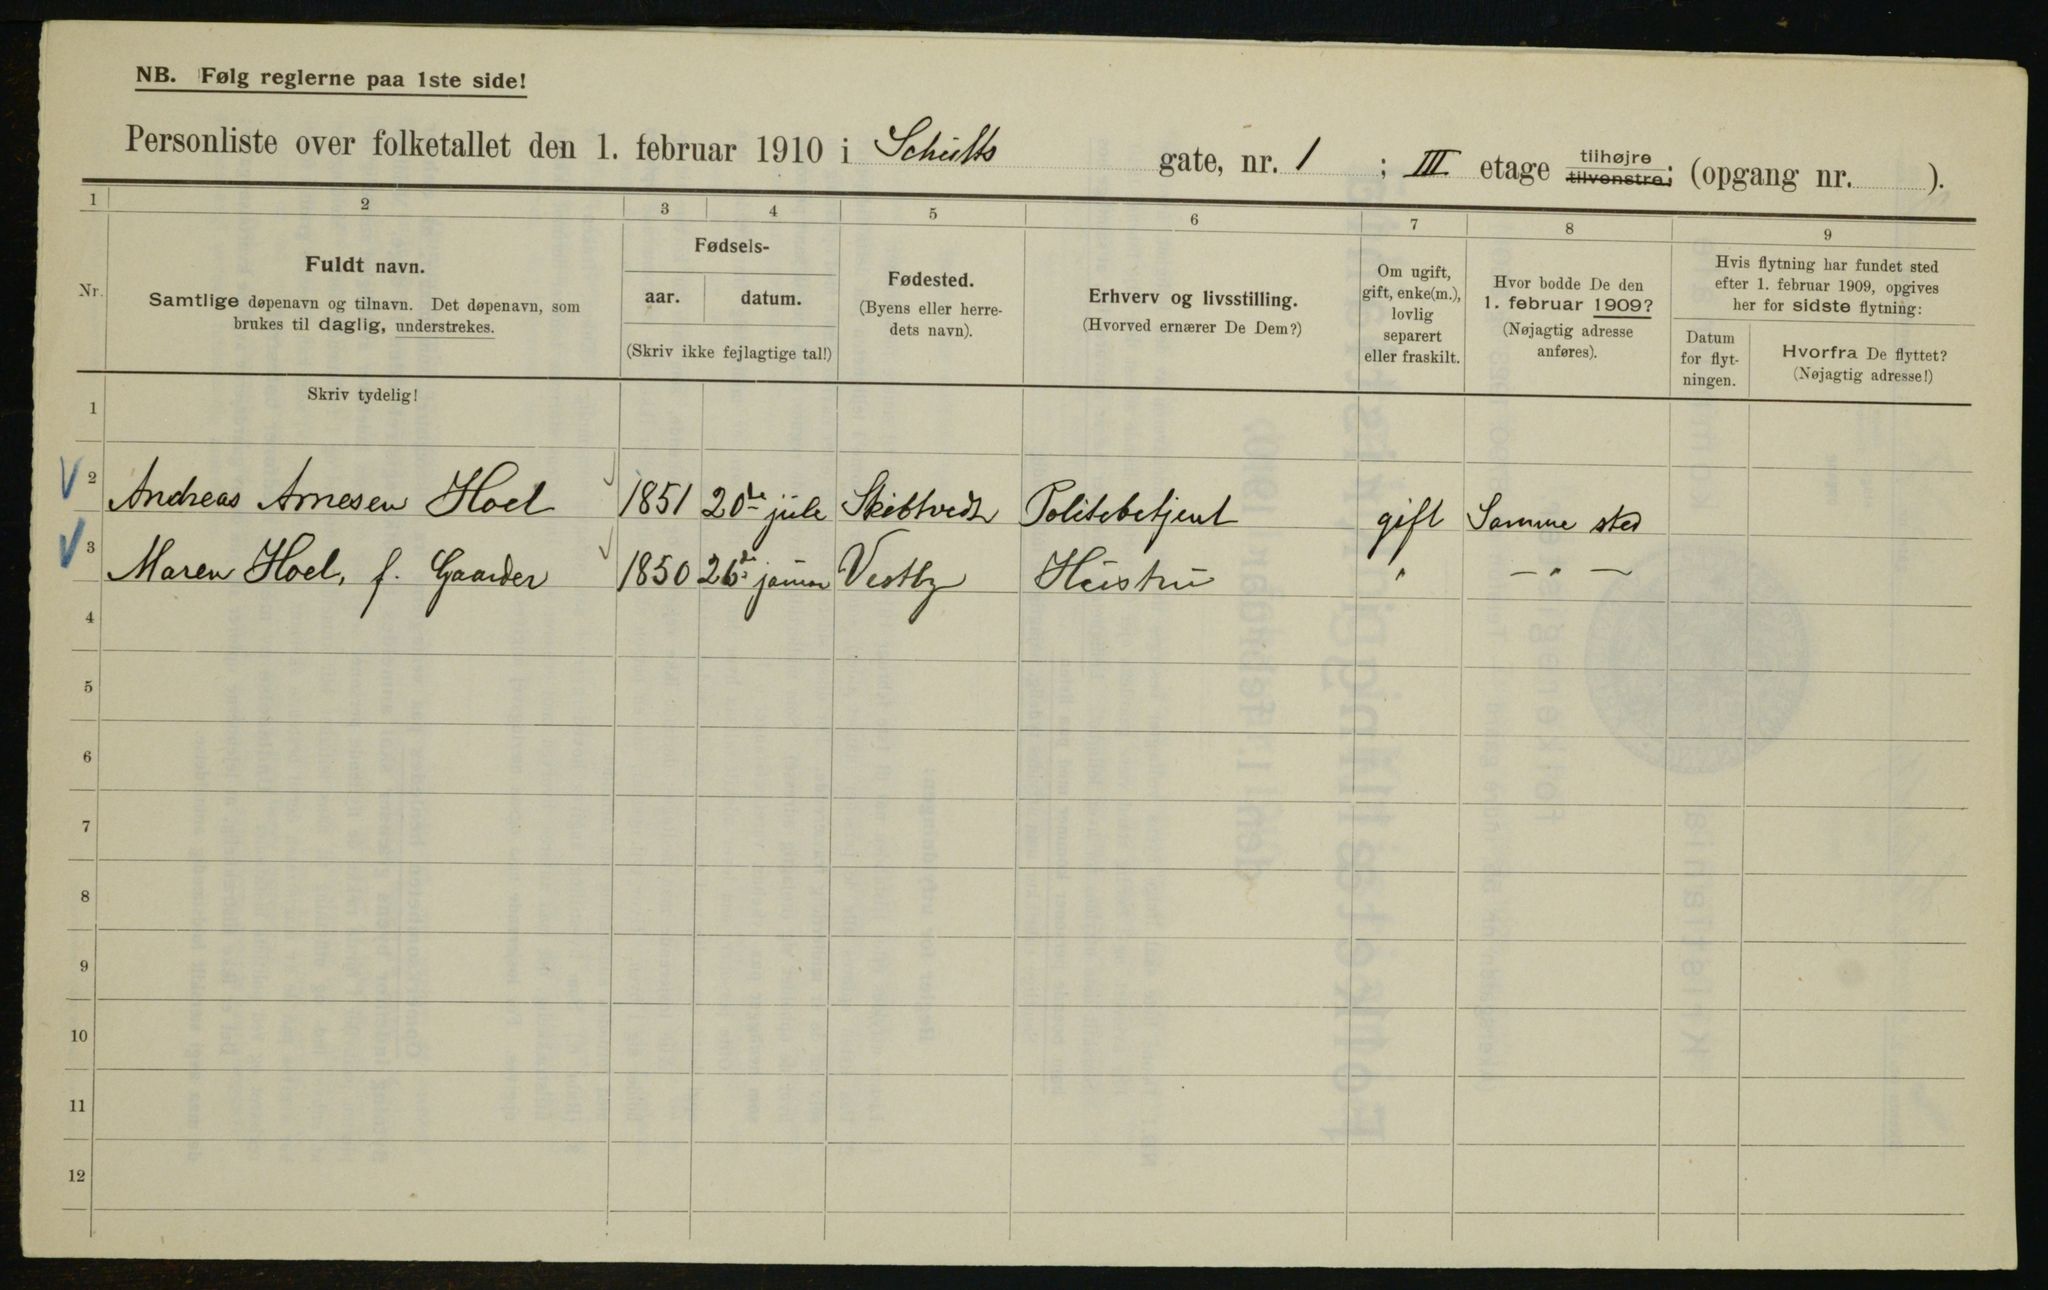 NB. Følg reglerne paa 1ste side!
Personliste over folketallet den 1. februar 1910 i Schults gate, nr. 1 ; III etage tilhøjre tilvenstre; (opgang nr. ).
1 2 3 4 5 6 7 8 9
Nr. Fuldt navn. Samtlige døpenavn og tilnavn. Det døpenavn, som brukes til daglig, understrekes.
Fødsels- aar. datum. (Skriv ikke fejlagtige tal!)
Fødested. (Byens eller herredets navn).
Erhverv og livsstilling. (Hvorved ernærer De Dem?)
Om ugift, gift, enke(m.), lovlig separert eller fraskilt.
Hvor bodde De den 1. februar 1909? (Nøjagtig adresse anføres).
Hvis flytning har fundet sted efter 1. februar 1909, opgives her for sidste flytning:
Datum for flytningen. Hvorfra De flyttet? (Nøjagtig adresse!)
Skriv tydelig!
1
2 Andreas Arnesen Hoel 1851 20de jule Skibtvedt Politebetjent gift Samme sted
3 Maren Hoel, f. Gaarder 1850 26de januar Vestby Hüstru " — " —
4
5
6
7
8
9
10
11
12